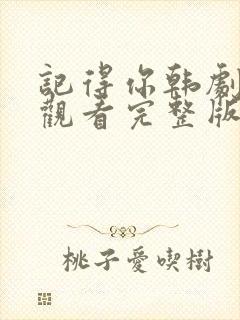 記得你韩劇
觀看完整版
桃子愛喫樹